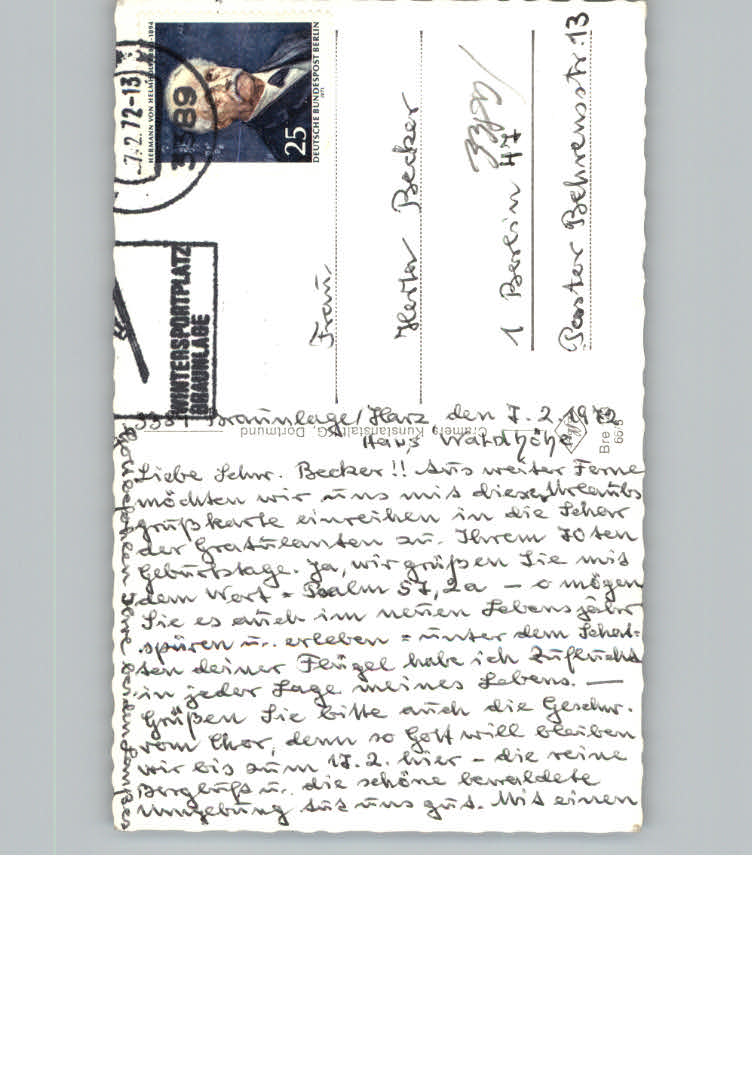 HERMANN VON HELMHOLTZ 1821-1894
25
DEUTSCHE BUNDESPOST BERLIN
1971
-7.2.72-13
3389
WINTERSPORTPLATZ
BRAUNLAGE
Frau
Herta Becker
1 Berlin 47
Pastor Behrensstr. 13
Braunlage/Harz den 7.2.1972
Haus Waldhöhe
Cramers Kunstanstalt KG, Dortmund
Bre
66/5
Liebe Schw. Becker!! Aus weiter Ferne
möchten wir uns mit dieser Urlaubs
grußkarte einreihen in die Schar
der Gratulanten zu Ihrem 70ten
Geburtstage. Ja, wir grüßen Sie mit
dem Wort = Psalm 57,2a — o mögen
Sie es auch im neuen Lebensjahr
spüren u. erleben = unter dem Schat-
ten deiner Flügel habe ich Zuflucht
in jeder Lage meines Lebens. —
Grüßen Sie bitte auch die Geschw.
vom Chor, denn so Gott will bleiben
wir bis zum 17.2. hier – die reine
Bergluft u. die schöne bewaldete
Umgebung tut uns gut. Mit einem